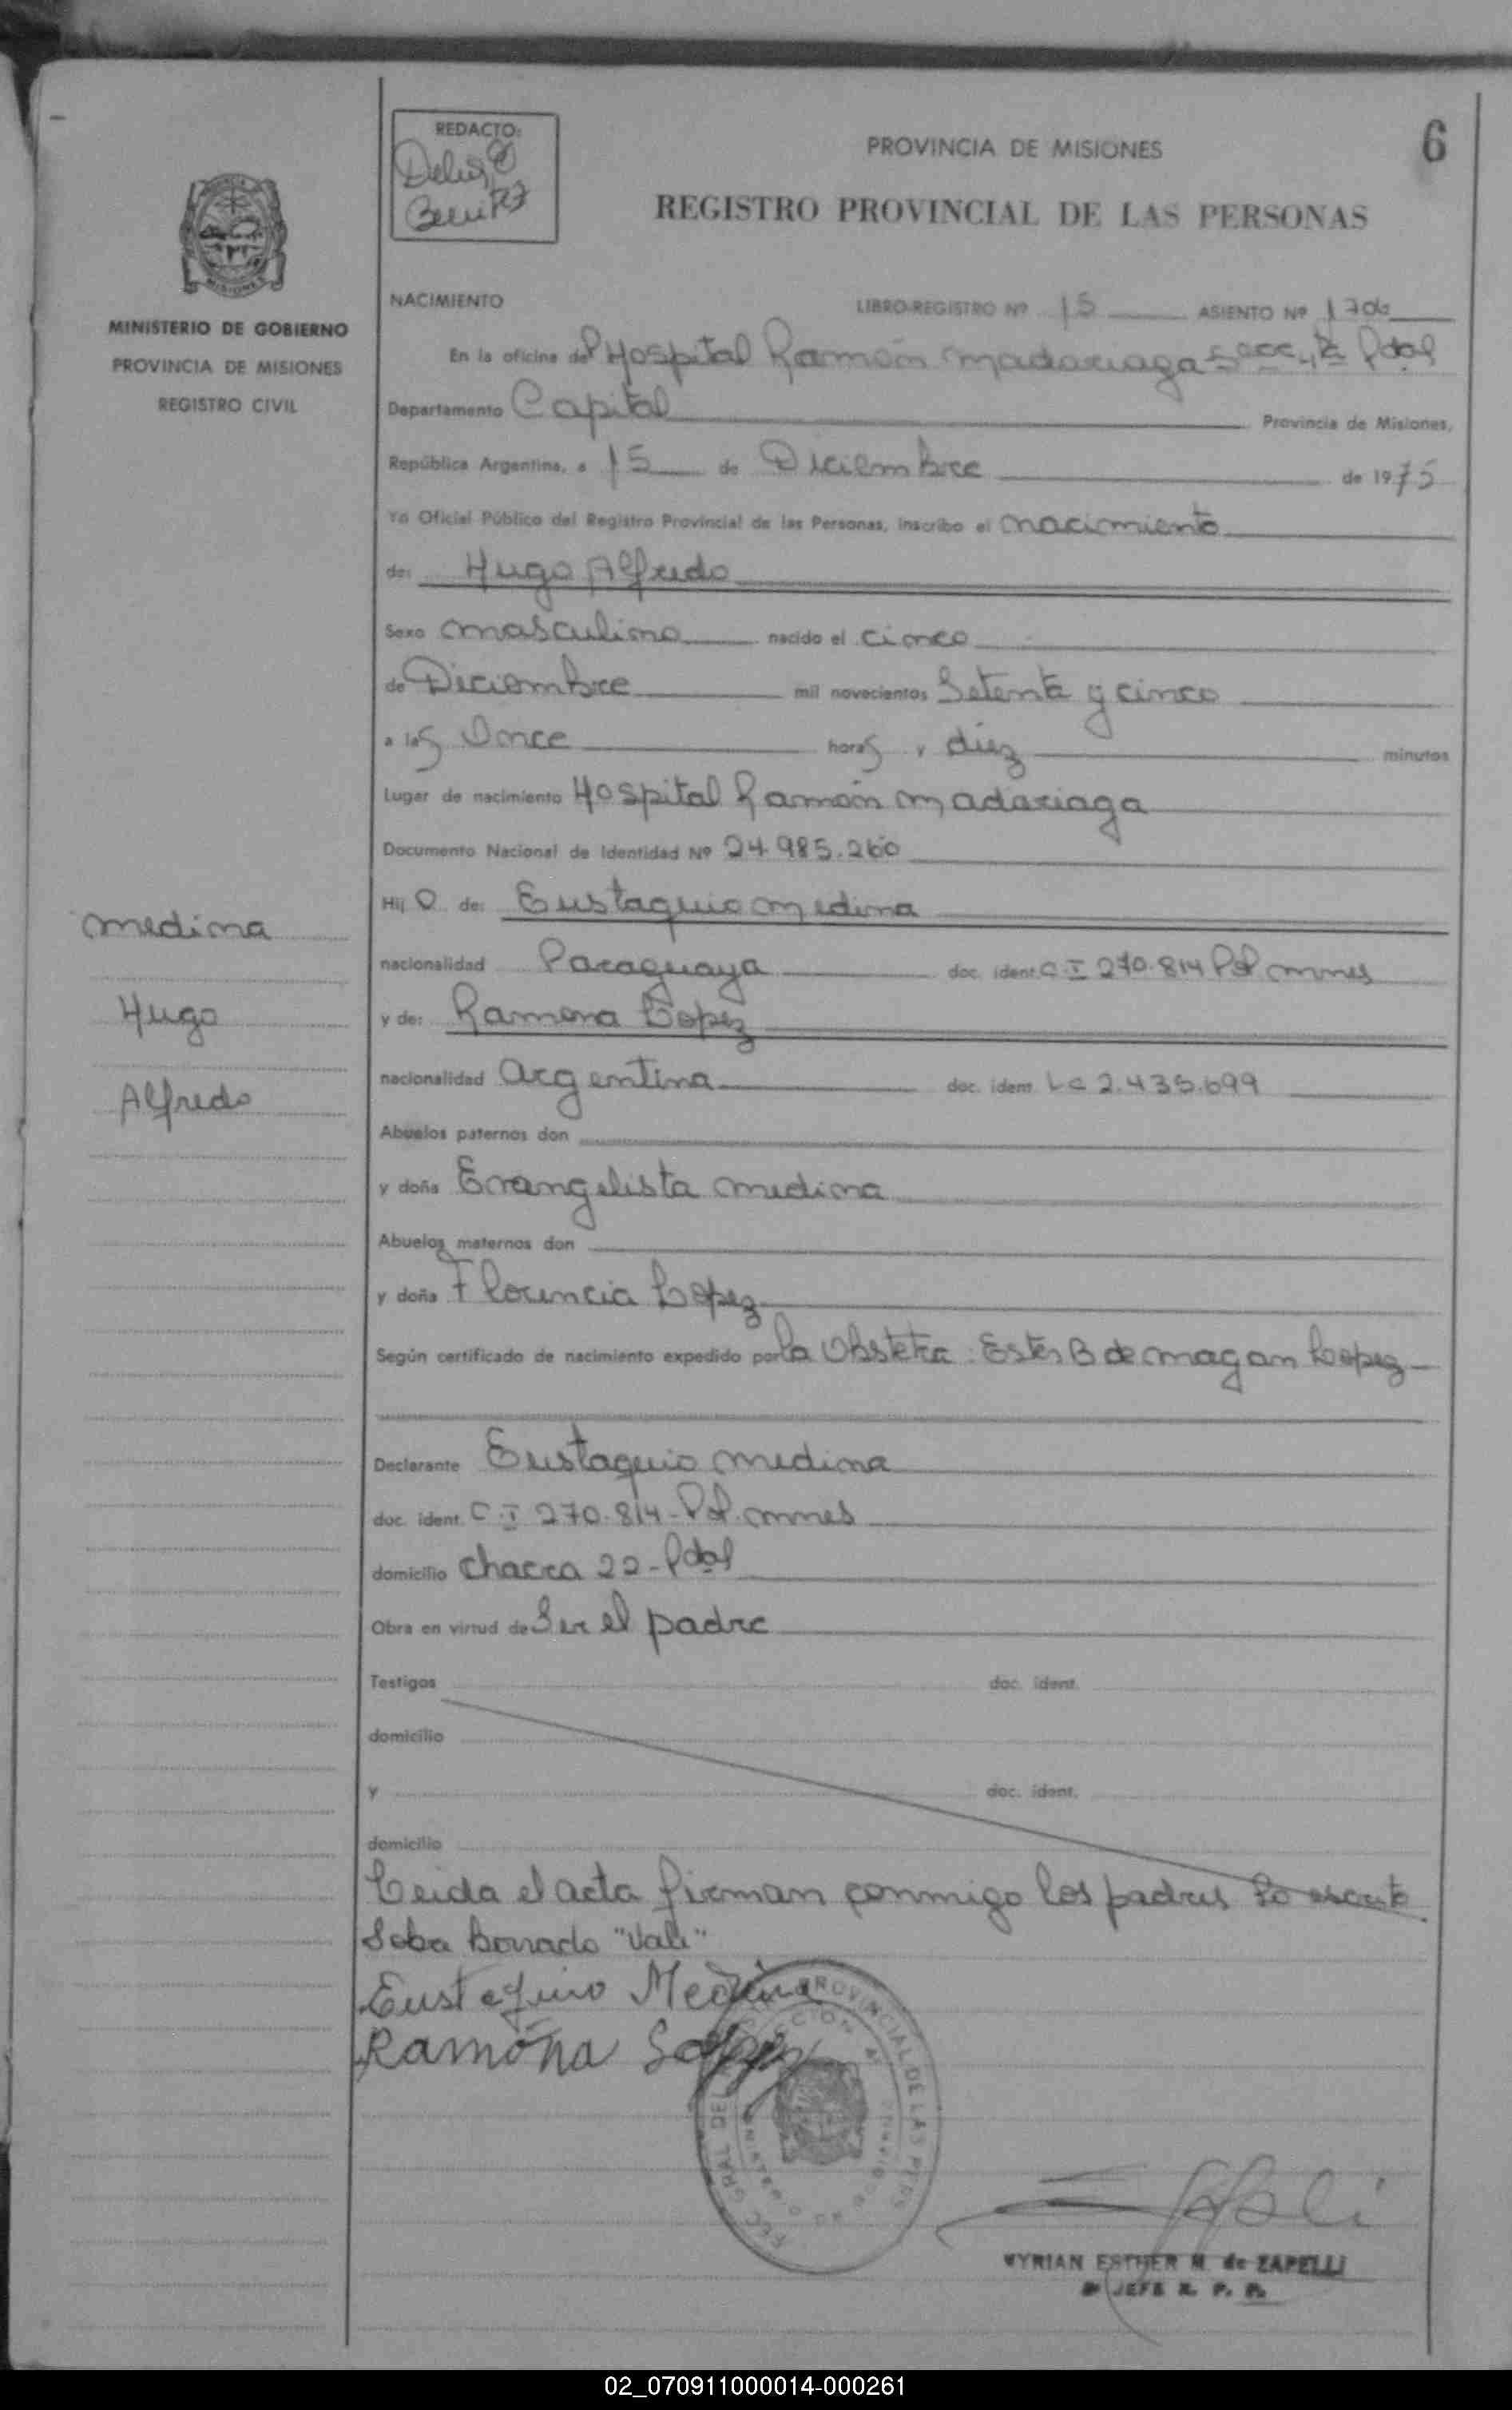 REDACTO:
PROVINCIA DE MISIONES
6
REGISTRO PROVINCIAL DE LAS PERSONAS
MINISTERIO DE GOBIERNO
PROVINCIA DE MISIONES
REGISTRO CIVIL
NACIMIENTO LIBRO-REGISTRO Nº 15 ASIENTO Nº 1706
En la oficina del Hospital Ramón Madariaga Secc. 1ª Pdas
Departamento Capital Provincia de Misiones,
República Argentina, a 15 de Diciembre de 1975
Yo Oficial Público del Registro Provincial de las Personas, inscribo el nacimiento
de: Hugo Alfredo
Sexo masculino nacido el cinco
de Diciembre mil novecientos Setenta y cinco
a las Once horas y diez minutos
Lugar de nacimiento Hospital Ramón Madariaga
Documento Nacional de Identidad Nº 24.985.260
Hijo de: Eustaquio Medina
nacionalidad Paraguaya doc. ident. C.I 270.814 Pol mnes
y de: Ramona Lopez
nacionalidad Argentina doc. ident. LC 2.435.699
Abuelos paternos don
y doña Evangelista medina
Abuelos maternos don
y doña Florencia Lopez
Según certificado de nacimiento expedido por la Obstetra: Ester B de magan Lopez
Declarante Eustaquio medina
doc. ident. C.I 270.814 - Pol. mnes
domicilio chacra 22 - Pdas
Obra en virtud de Ser el padre
Testigos doc. ident.
domicilio
y doc. ident.
domicilio
Leida el acta firman conmigo los padres Lo escrito
Sobre borrado "Vale"
Eustaquio Medina
Ramona Lopez
medina
Hugo
Alfredo
MYRIAN ESTHER M. de ZAPELLI
JEFE R. P. P.
02_070911000014-000261